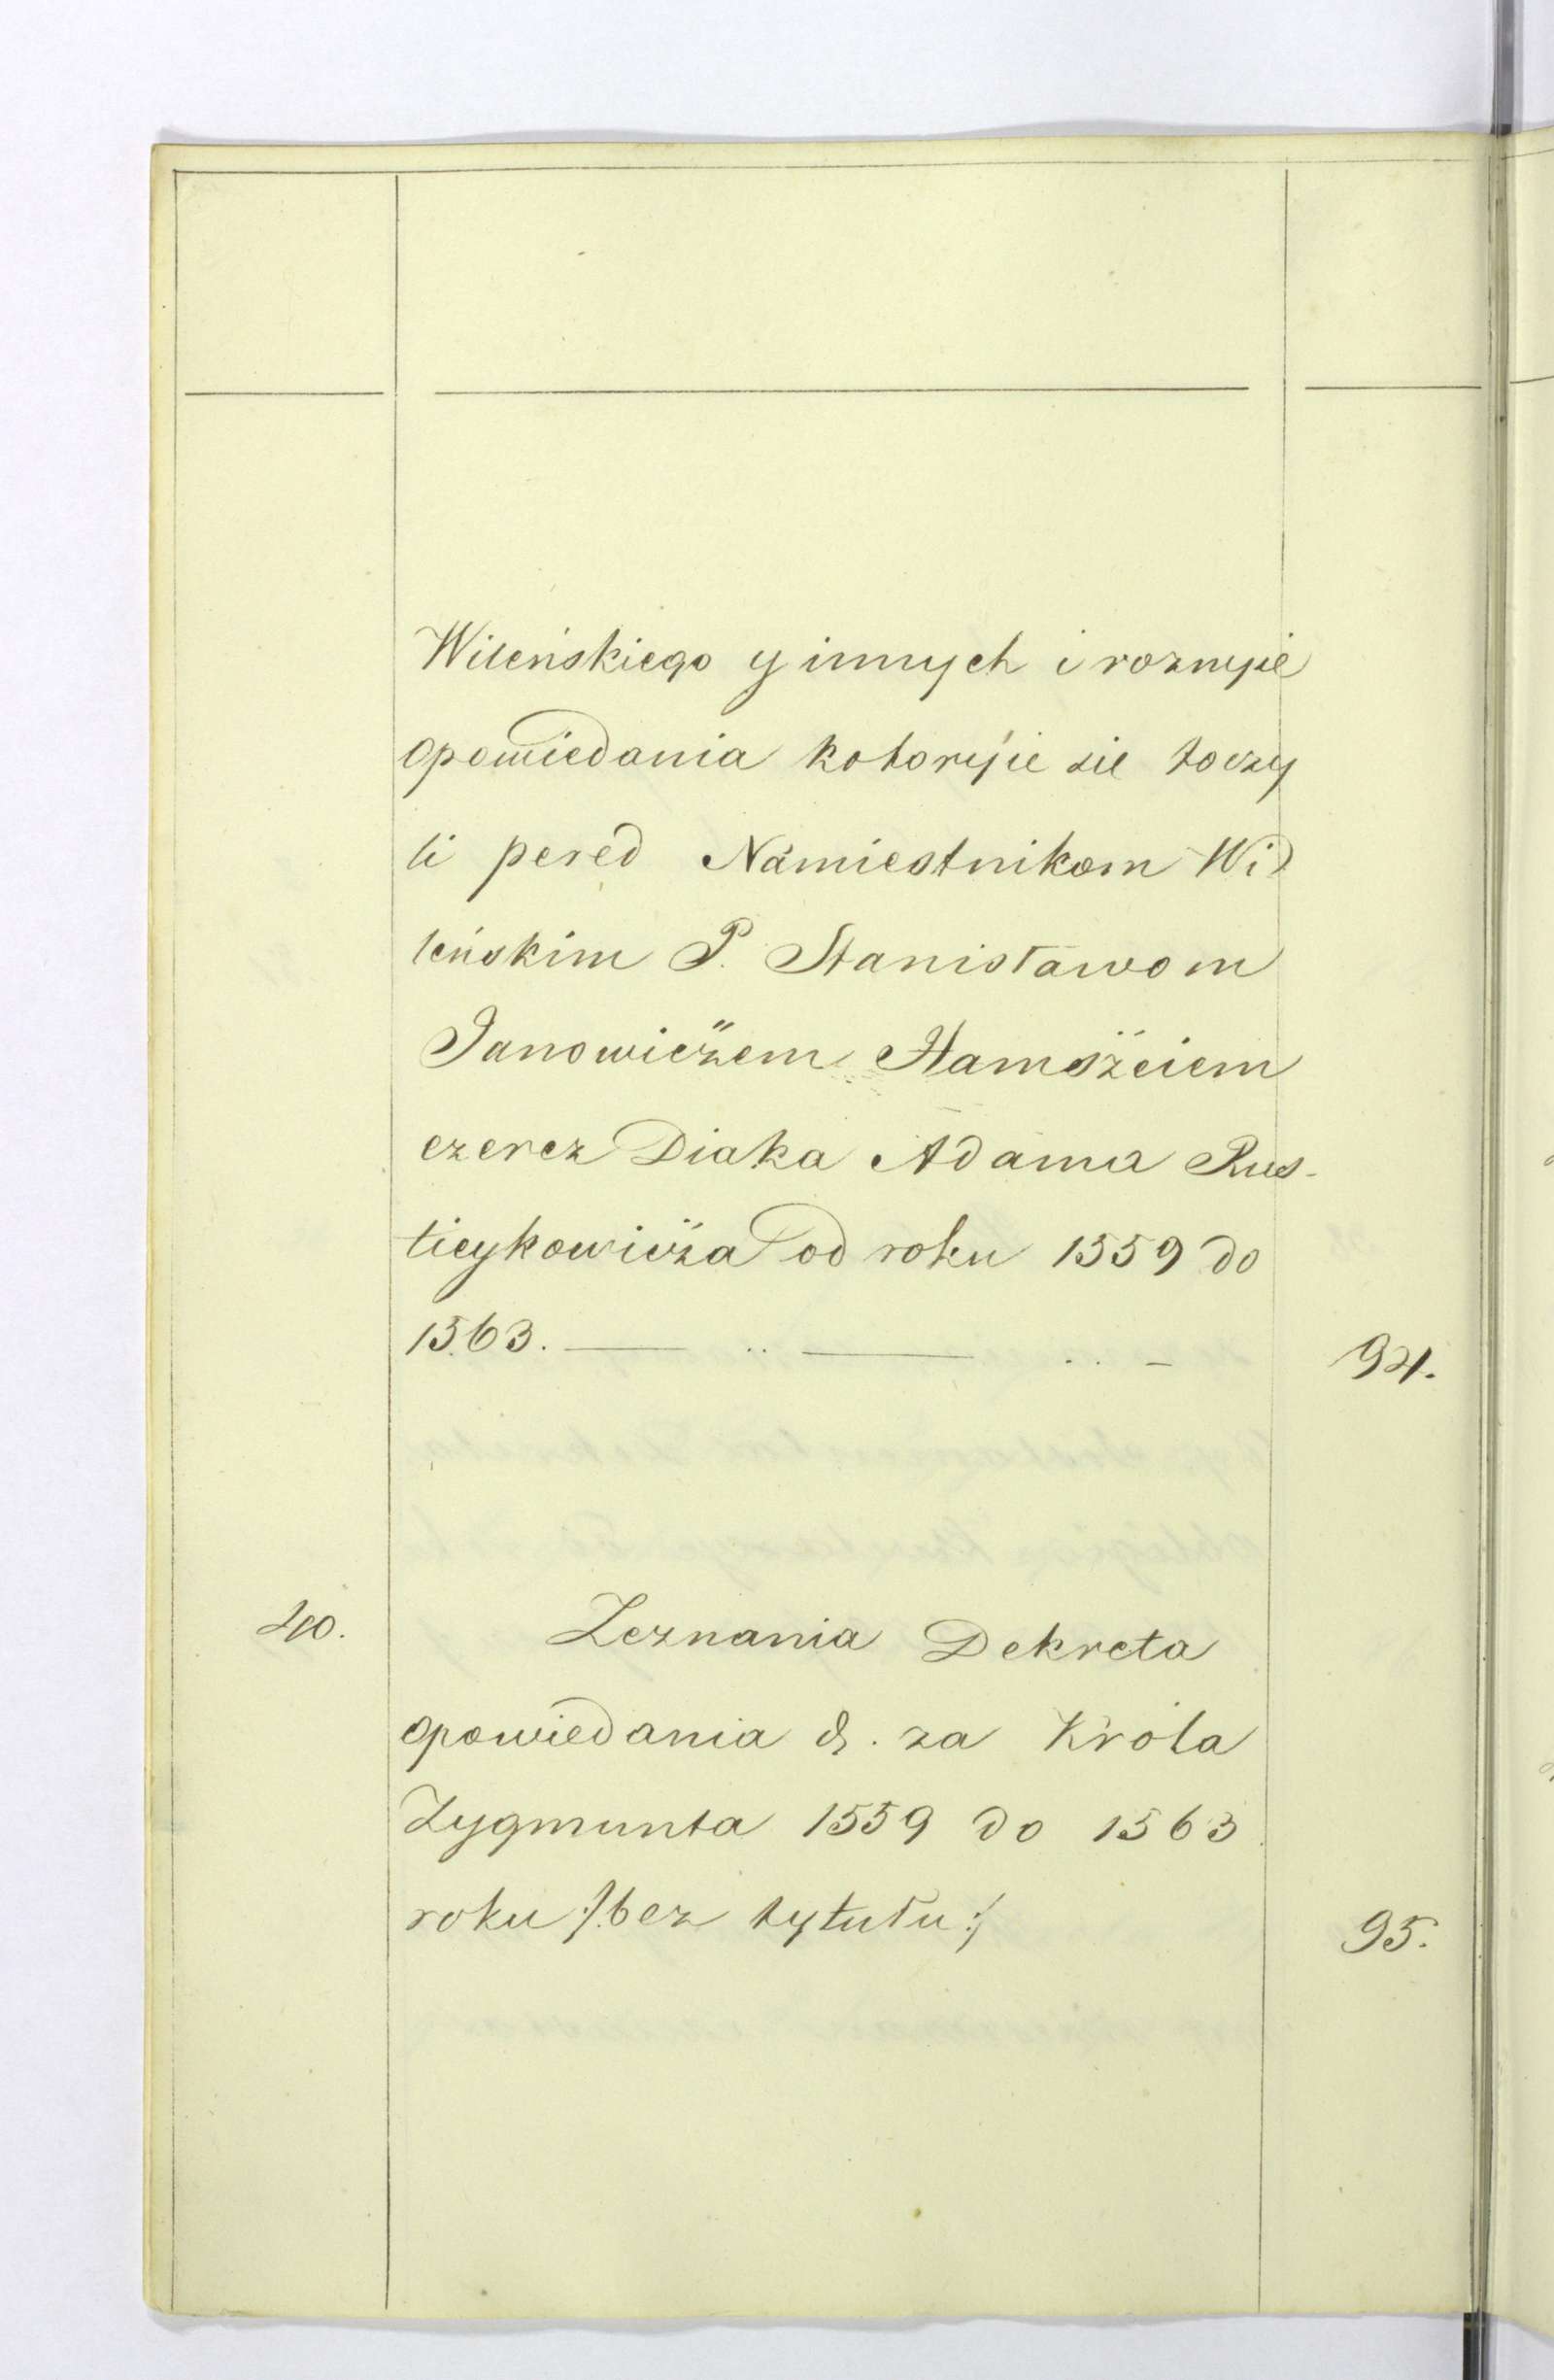 Wileńskiego y innych i roznyie
opowiedania kotoryie sie toczy
li pered Namiestnikom Wi
leńskim P. Stanisławom
Janowiczem Hamszeiem
czerez Diaka Adama Rus-
tieykowicza od roku 1559 do
1563. — .. — .. - 94.
40. Zeznania Dekreta
opowiedania &. za Króla
Zygmunta 1559 do 1563
roku /:bez tytułu:/ 95.